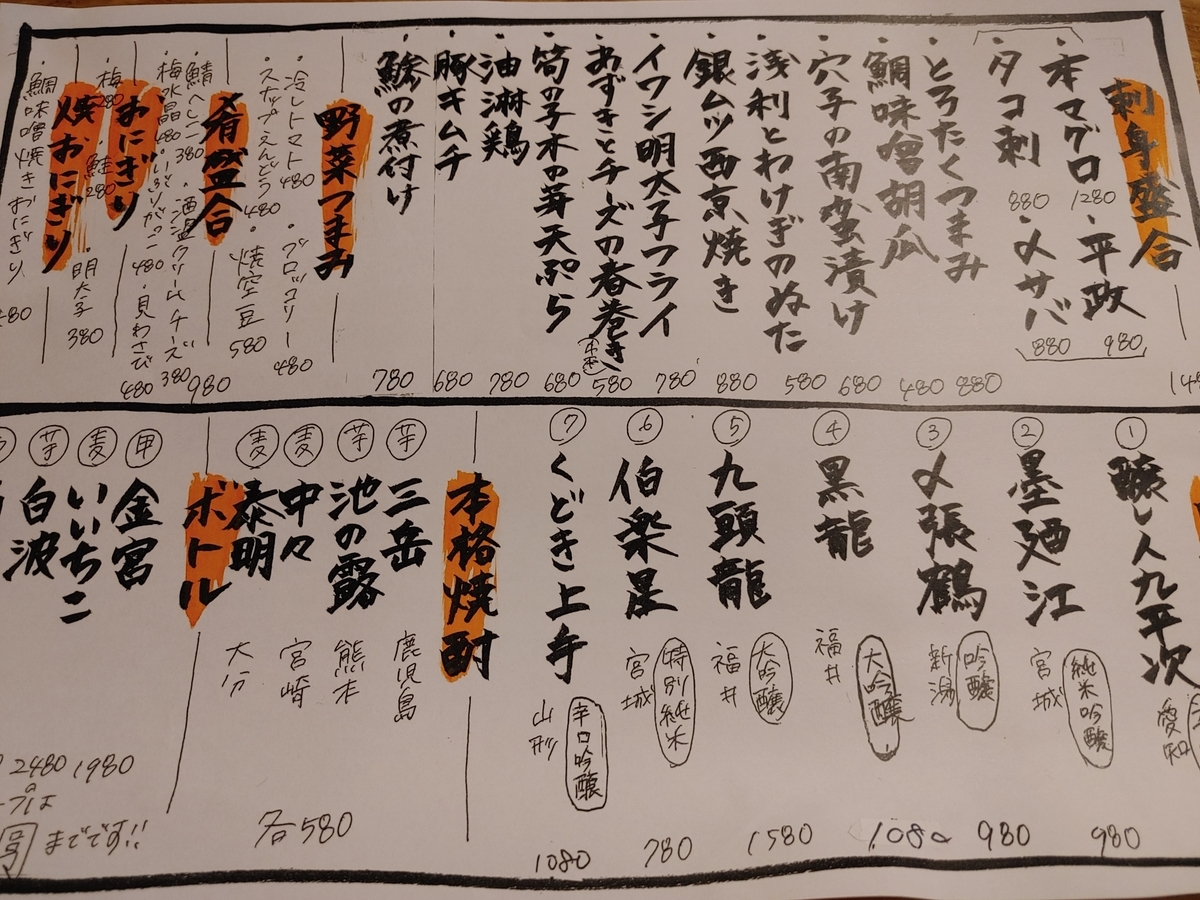 刺身盛合
・本マグロ 1280
・平政 980
・タコ刺 880
・〆サバ 880
・とろたくつまみ 880
・鯛味噌胡瓜 480
・穴子の南蛮漬け 680
・浅利とわけぎのぬた 580
・銀ムツ西京焼き 880
・イワシ明太子フライ 780
・あずきとチーズの春巻き 580
・筍の子木の芽天ぷら 680
・油淋鶏 780
・豚キムチ 680
・鯵の煮付け 780
野菜つまみ
・冷しトマト 480
・ブロッコリー 480
・スナップえんどう 480
・焼空豆 580
肴盛合 980
・鯖へしこ 380
・酒盗クリームチーズ 380
・梅水晶 480
・いぶりがっこ 480
・貝わさび 480
おにぎり
・梅 280
・鮭 280
・明太子 380
焼おにぎり
・鯛味噌焼きおにぎり 480
① 醸し人九平次 愛知
② 墨廼江 宮城 純米吟醸 980
③ 〆張鶴 新潟 吟醸 980
④ 黒龍 福井 大吟醸 1080
⑤ 九頭龍 福井 大吟醸 1580
⑥ 伯楽星 宮城 特別純米 780
⑦ くどき上手 山形 辛口吟醸 1080
本格焼酎
芋 三岳 鹿児島
芋 池の露 熊本
麦 中々 宮崎
麦 泰明 大分
各580
ボトル
甲 金宮 1980
麦 いいちこ 2480
芋 白波
までです!!